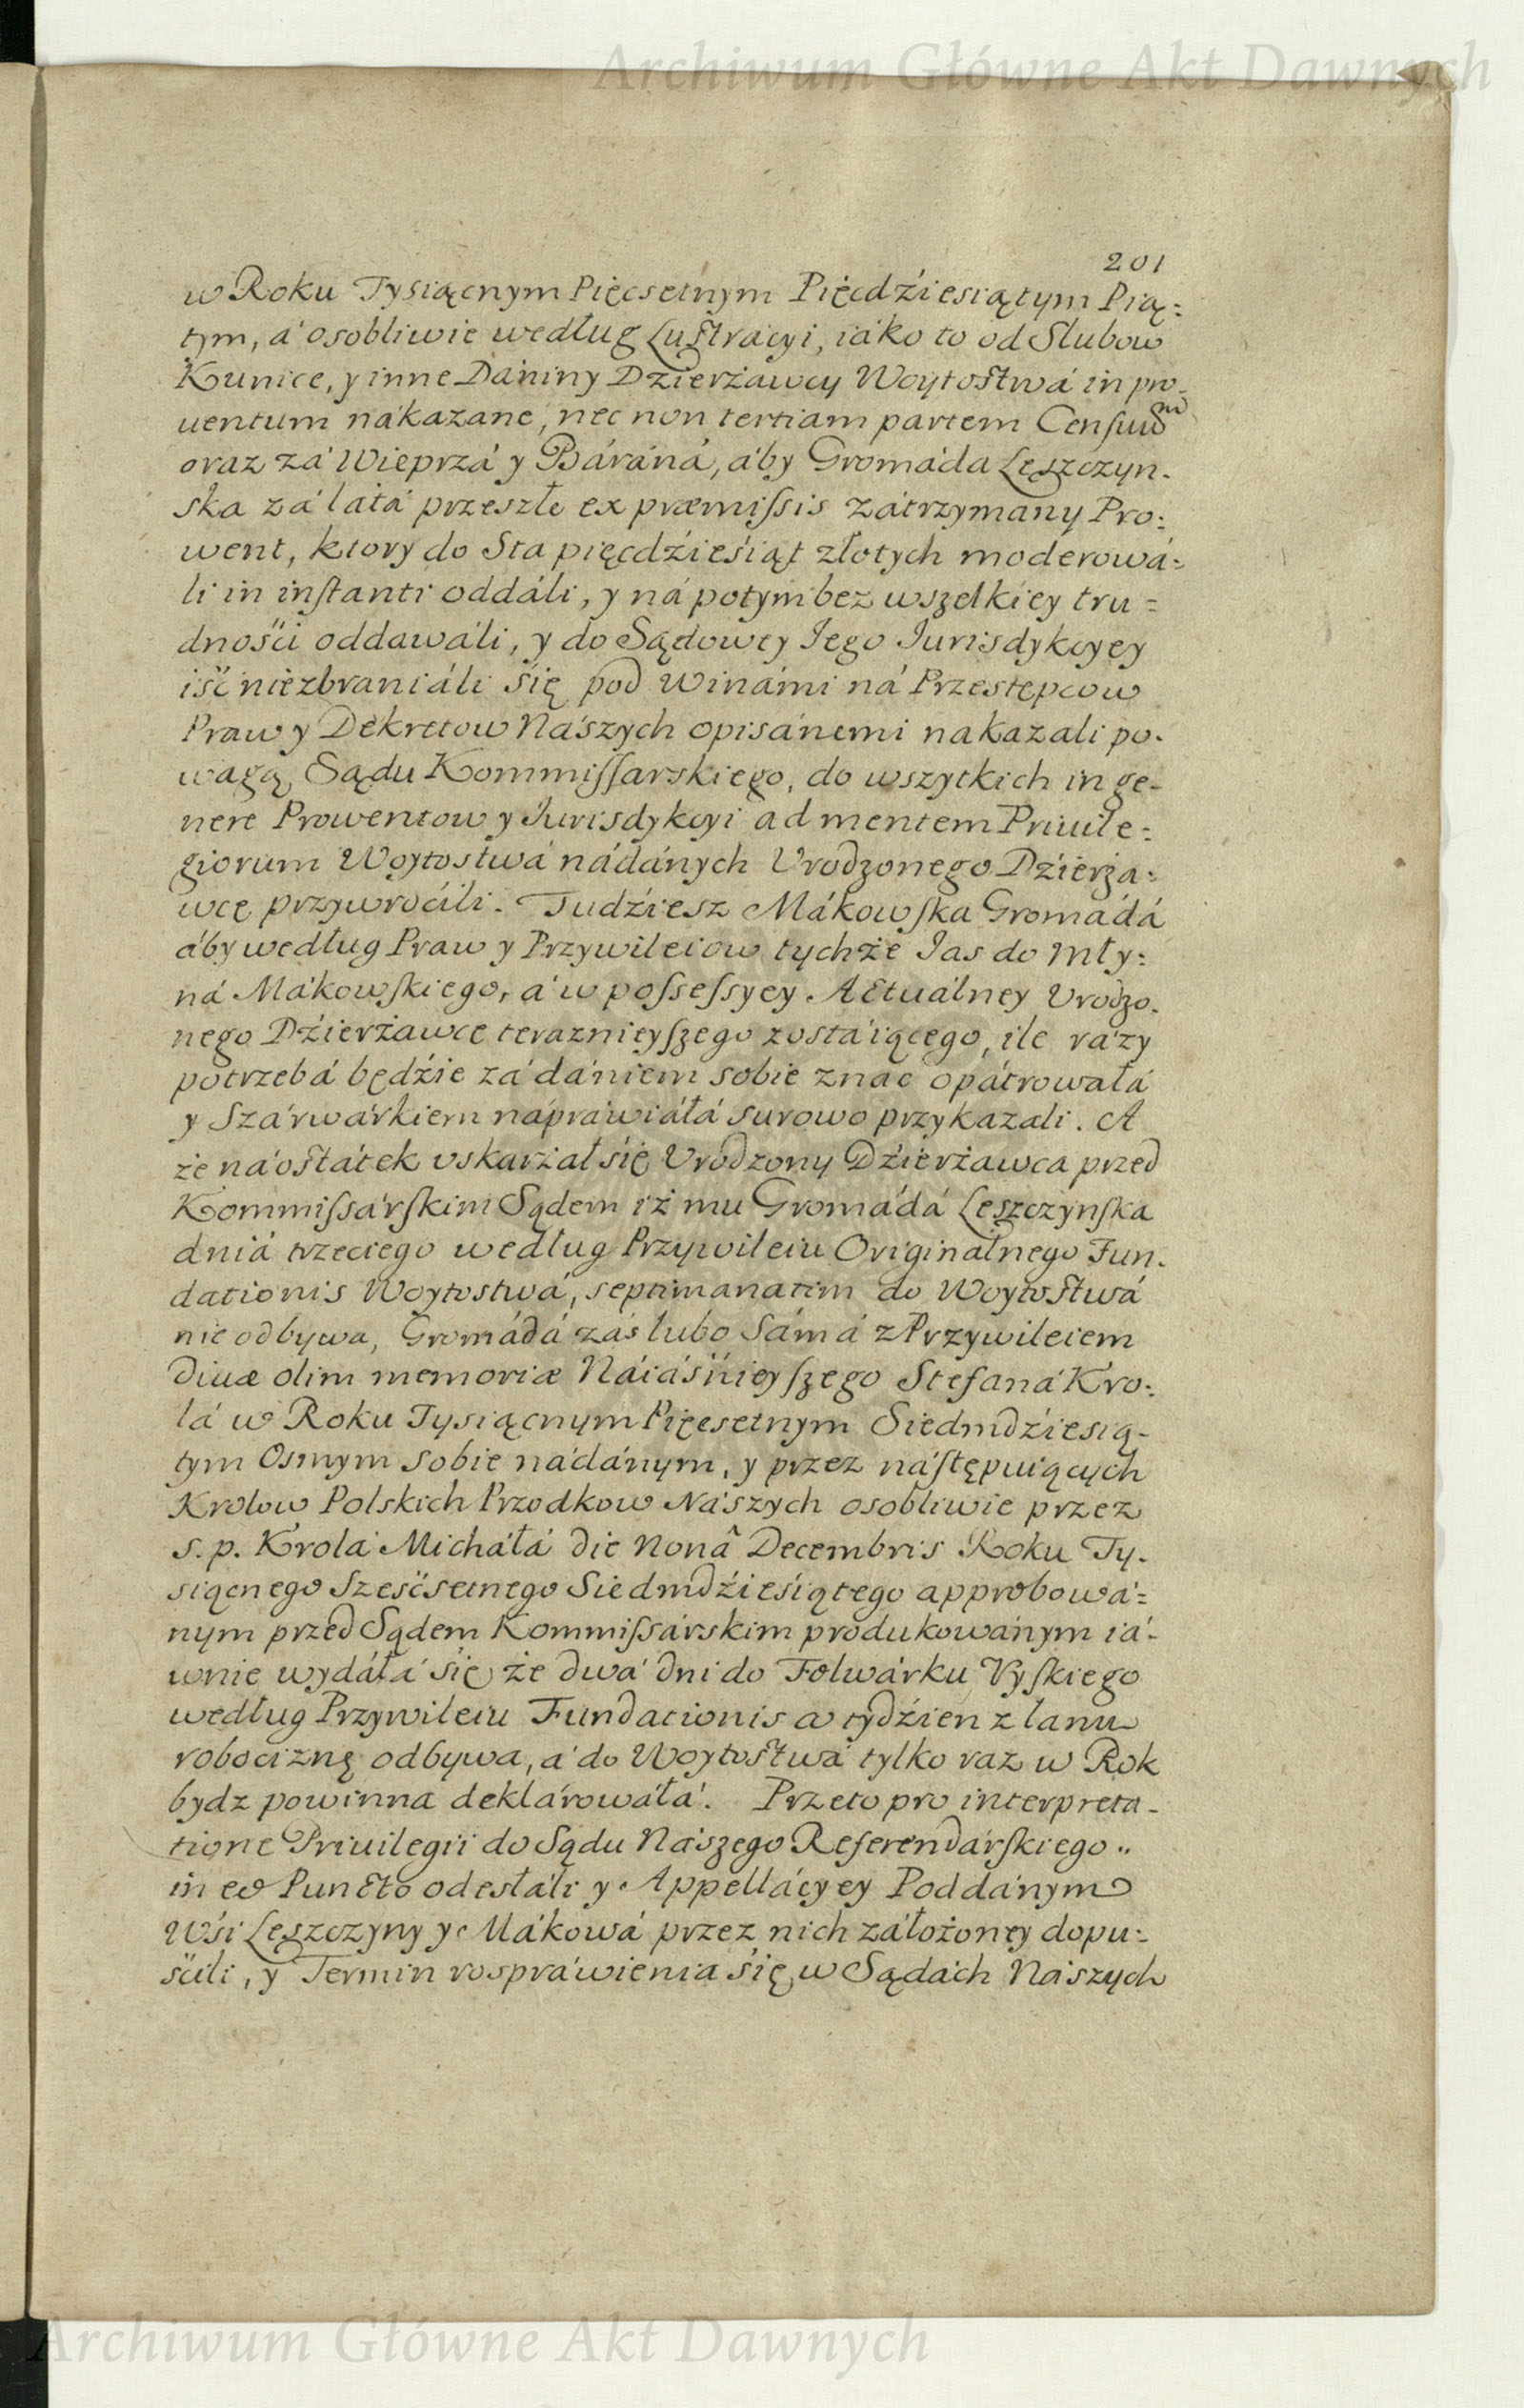 Archiwum Główne Akt Dawnych
201
w Roku Tysiącnym Pięcsetnym Pięcdźiesiątym Pią:
tym, á osobliwie według Lustrácyi, iáko to od Slubow
Kunice, y inne Dániny Dzierżawcy Woytostwá in pro-
uentum nákazane, nec non tertiam partem Censuum
oraz zá Wieprzá y Báráná, áby Gromáda Leszczyn-
ska zá látá przeszłe ex præmiſsis zátrzymány Pro:
went, ktory do Sta pięcdźieśiąt złotych moderowá:
li in inſtanti oddáli, y ná potym bez wszelkiey tru=
dnośći oddawáli, y do Sądowey Iego Iurisdykcyey
iść niezbraniáli się pod Winámi ná Przestępcow
Praw y Dekretow Nászych opisánemi nakazali po-
wagą Sądu Kommiſſarskiego, do wszytkich in ge-
nere Prowentow y Iurisdykcyi ad mentem Priuile:
giorum Woytostwá nádánych Vrodzonego Dźierża:
wcę przywroćili. Tudźiesz Mákowſka Gromádá
áby według Praw y Przywileiow tychże Ias do Mły:
ná Mákowſkiego, á w poſseſsyey Actuálney Vrodzo-
nego Dźierżawce teraznieyſzego zostáiącego, ile rázy
potrzebá będźie zá dániem sobie znac opátrowáłá
y Szárwárkiem nápráwiáłá surowo przykazali. A
że náostátek vskarżał się Vrodzony Dźierżawca przed
Kommiſsárſkim Sądem iż mu Gromádá Leszczynſka
dniá trzeciego według Przywileiu Originalnego Fun-
dationis Woytostwá, septimanatim do Woytostwá
nie odbywa, Gromádá zás lubo sámá z Przywileiem
Diuæ olim memoriæ Náiáśnieyſzego Stefaná Kro:
lá w Roku Tysiącnym Pięcsetnym Siedmdźiesią-
tym Osmym sobie nádánym, y przez náſtępuiących
Krolow Polskich Przodkow Nászych osobliwie przez
s. p. Krolá Micháłá die Nonâ Decembris Roku Ty-
siącnego Sześćsetnego Siedmdźieśiątego approbowá=
nym przed Sądem Kommiſsárskim produkowánym iá-
wnie wydáłá się że dwá dni do Folwárku Vyſkiego
według Przywileiu Fundationis w tydźien z łanu
robociznę odbywa, á do Woytostwá tylko raz w Rok
bydz powinna deklárowáłá. Przeto pro interpreta-
tione Priuilegii do Sądu Nászego Referendárſkiego
in eo Puncto odesłáli y Appellácyey Poddánym
Wśi Leszczyny y Mákowá przez nich záłożoney dopu:
śćili, y Termin rospráwienia się w Sądách Nászych
Archiwum Główne Akt Dawnych